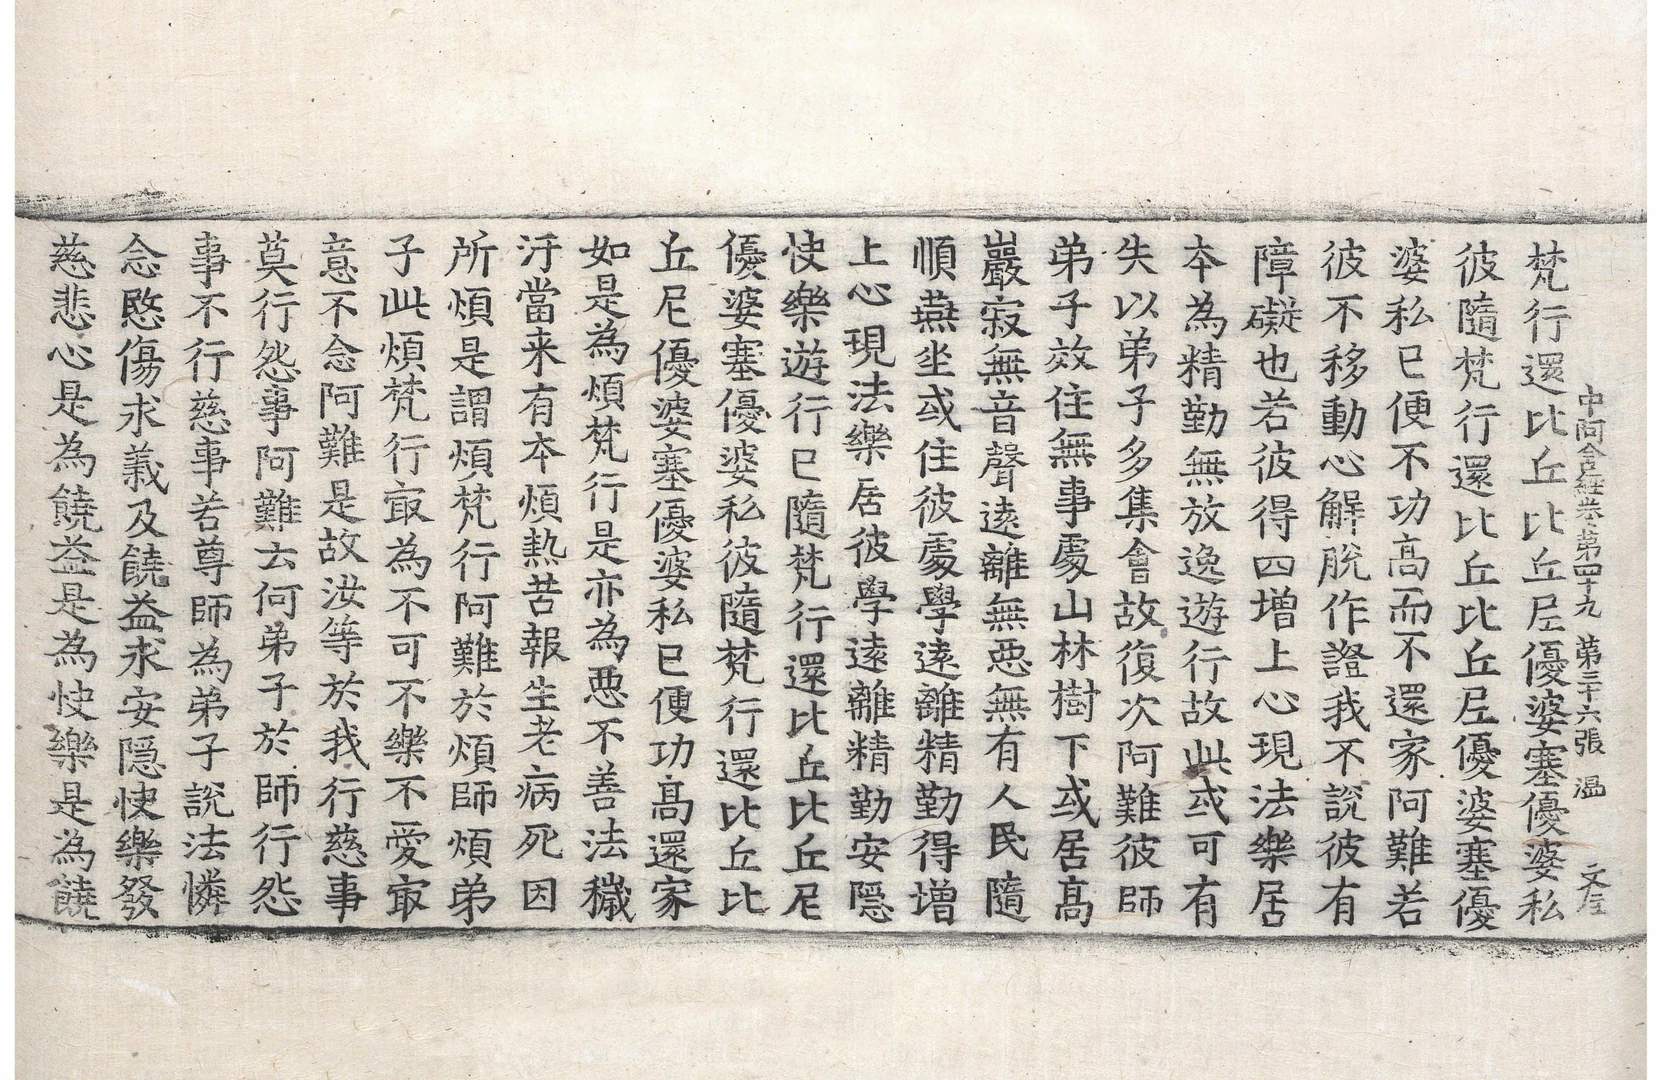 中阿含經卷第四十九 第三十六張 溫
梵行還比丘比丘尼優婆塞優婆私
彼隨梵行還比丘比丘尼優婆塞優
婆私已便不功高而不還家阿難若
彼不移動心解脫作證我不說彼有
障礙也若彼得四增上心現法樂居
本為精勤無放逸遊行故此或可有
失以弟子多集會故復次阿難彼師
弟子效住無事處山林樹下或居高
巖寂無音聲遠離無惡無有人民隨
順燕坐或住彼處學遠離精勤得增
上心現法樂居彼學遠離精勤安隱
快樂遊行已隨梵行還比丘比丘尼
優婆塞優婆私彼隨梵行還比丘比
丘尼優婆塞優婆私已便功高還家
如是為煩梵行是亦為惡不善法穢
汙當来有本煩熱苦報生老病死因
所煩是謂煩梵行阿難於煩師煩弟
子此煩梵行㝡為不可不樂不愛㝡
意不念阿難是故汝等於我行慈事
莫行怨事阿難云何弟子於師行怨
事不行慈事若尊師為弟子說法憐
念愍傷求義及饒益求安隱快樂發
慈悲心是為饒益是為快樂是為饒